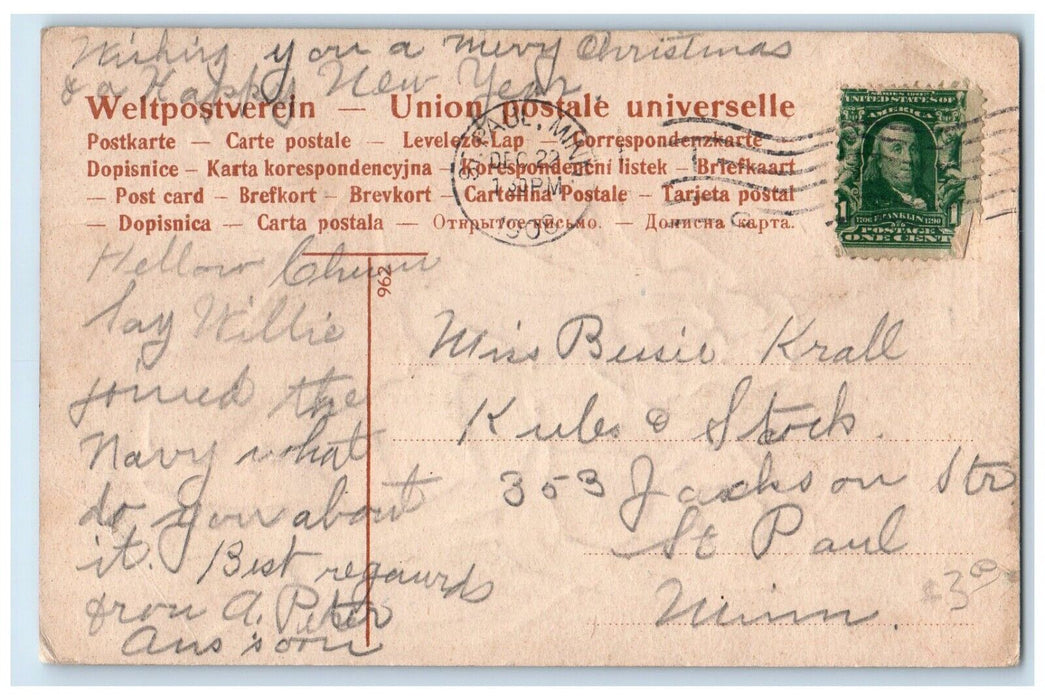 Wishing you a merry Christmas
& a Happy New Year
Weltpostverein — Union postale universelle
Postkarte — Carte postale — Levelező-Lap — Correspondenzkarte
Dopisnice — Karta korespondencyjna — Korespondenční listek — Briefkaart
— Post card — Brefkort — Brevkort — Cartolina Postale — Tarjeta postal
— Dopisnica — Carta postala — Открытое письмо. — Дописна карта.
ST. PAUL, MINN.
DEC 22
1 30 PM
1908
SERIES 1902
UNITED STATES OF
AMERICA
1706 FRANKLIN 1790
1 1
POSTAGE
ONE CENT
962
Hellow Chum
Say Willie
joined the
Navy what
do you about
it. Best regaurds
from A. Peter
Ans soon
Miss Bessie Krall
& Stock.
353 Jackson Str
St Paul
Minn.